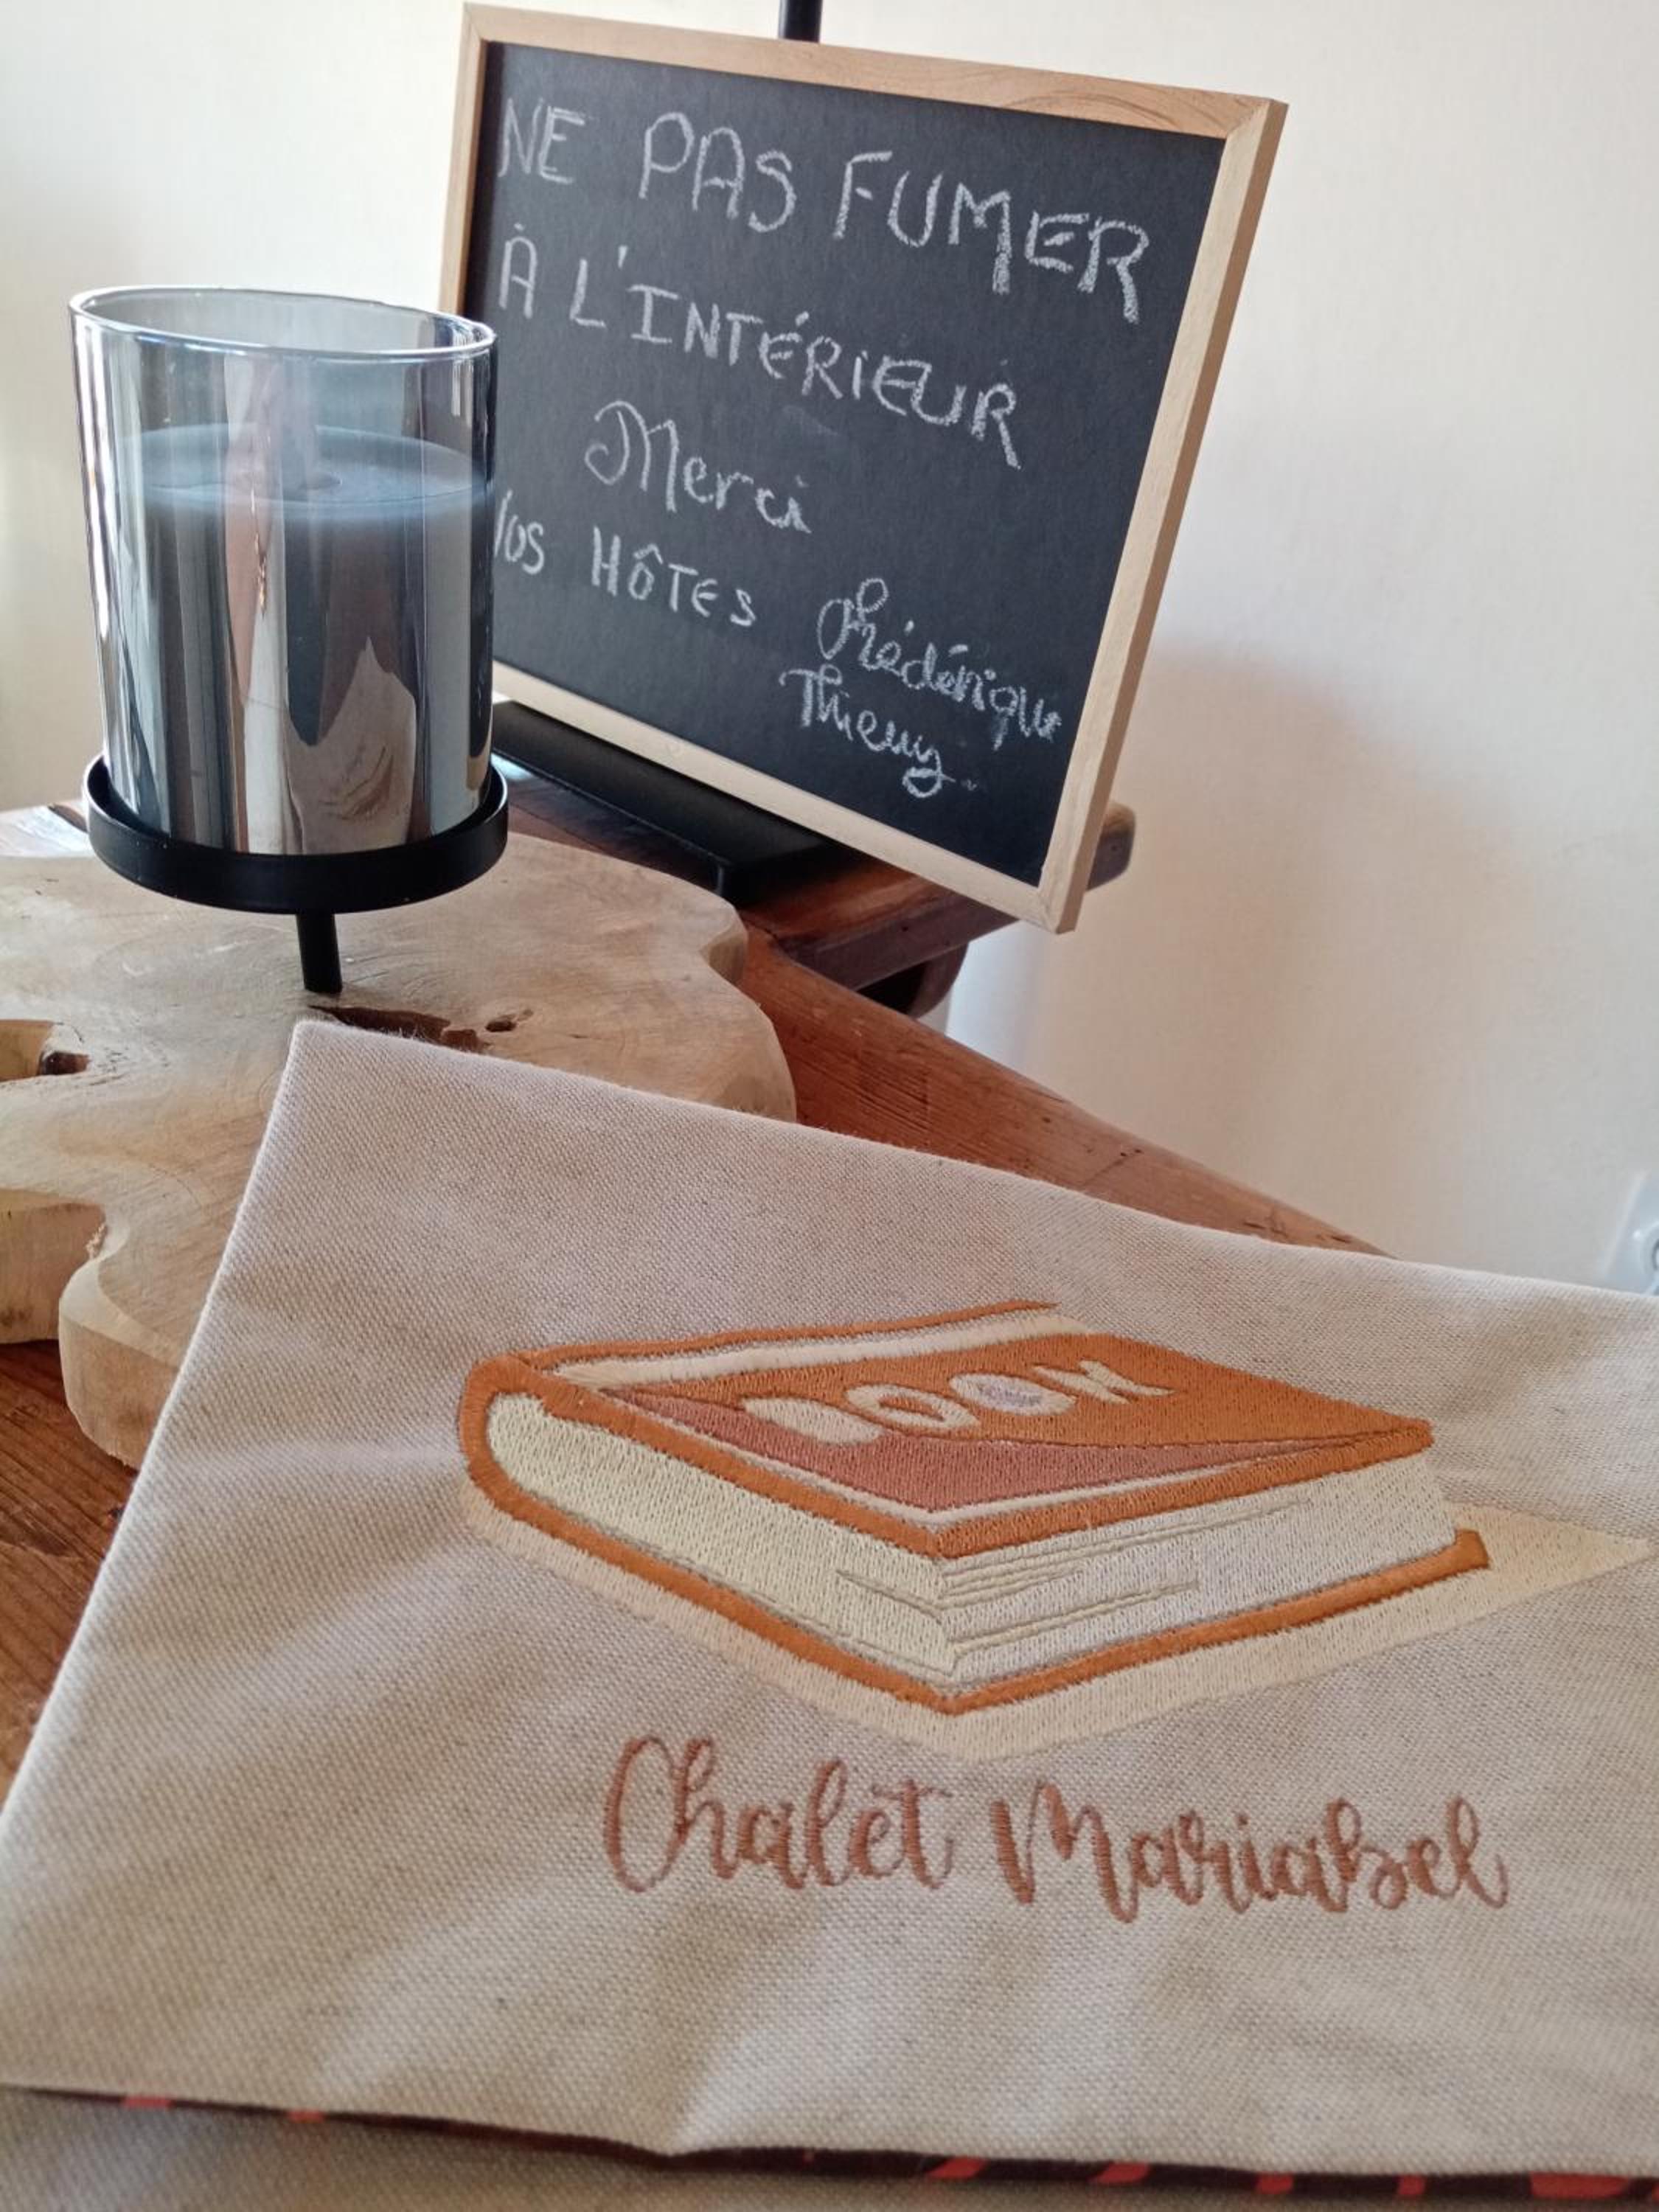 NE PAS FUMER
À L'INTÉRIEUR
Merci
VOS HÔTES Frédérique
Thierry
BOOK
Chalet Mariabel